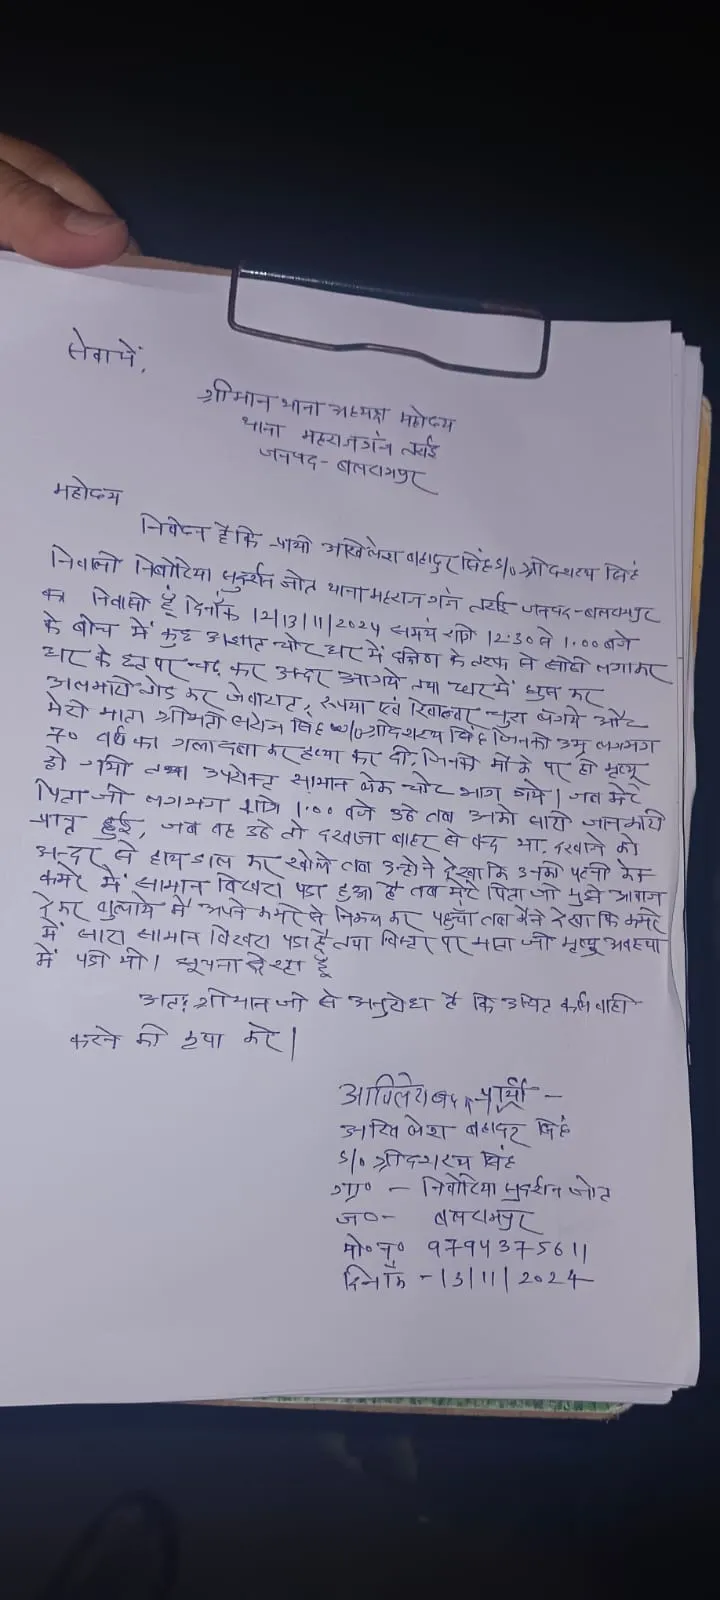 सेवा में,
श्रीमान थाना अध्यक्ष महोदय
थाना महराजगंज तराई
जनपद - बलरामपुर
महोदय
निवेदन है कि प्रार्थी अखिलेश बहादुर सिंह S/o श्री दशरथ सिंह
निवासी निबोरिया सुदर्शन जोत थाना महराजगंज तराई जनपद-बलरामपुर
का निवासी हूँ दिनाँक 12/13/11/2024 समय रात्रि 12:30 से 1:00 बजे
के बीच में कुछ अज्ञात चोर घर में दक्षिण के तरफ से सीढी लगाकर
घर के छत पर चढ़ कर अन्दर आ गये तथा घर में घुस कर
अलमारी तोड़ कर जेवरात, रूपया एवं रिवाल्वर चुरा ले गये और
मेरी माता श्रीमती सरोज सिंह w/o श्री दशरथ सिंह जिनकी उम्र लगभग
70 वर्ष का गला दबा कर हत्या कर दी, जिनकी मौके पर ही मृत्यु
हो गयी तथा उपरोक्ट सामान लेकर चोर भाग गये। जब मेरे
पिता जी लगभग रात्रि 1:00 बजे उठे तब उनको सारी जानकारी
प्राप्त हुई, जब वह उठे तो दरवाजा बाहर से बन्द था, दरवाजे को
अन्दर से हाथ डाल कर खोले तब उन्होने देखा कि उनकी पत्नी के
कमरे में सामान बिखरा पड़ा हुआ है तब मेरे पिता जी मुझे आवाज
देकर बुलाये मैं अपने कमरे से निकल कर पहुँचा तब मैंने देखा कि कमरे
में सारा सामान बिखरा पड़ा है तथा बिस्तर पर माता जी मृत्यु अवस्था
में पडी थी। सूचना दे रहा हूँ
अतः श्रीमान जी से अनुरोध है कि उचित कार्यवाही
करने की कृपा करे।
प्रार्थी -
अखिलेश बहादुर सिंह
S/o श्री दशरथ सिंह
ग्रा० - निबोरिया सुदर्शन जोत
ज० - बलरामपुर
मो० न० 9794375611
दिनाँक - 13/11/2024